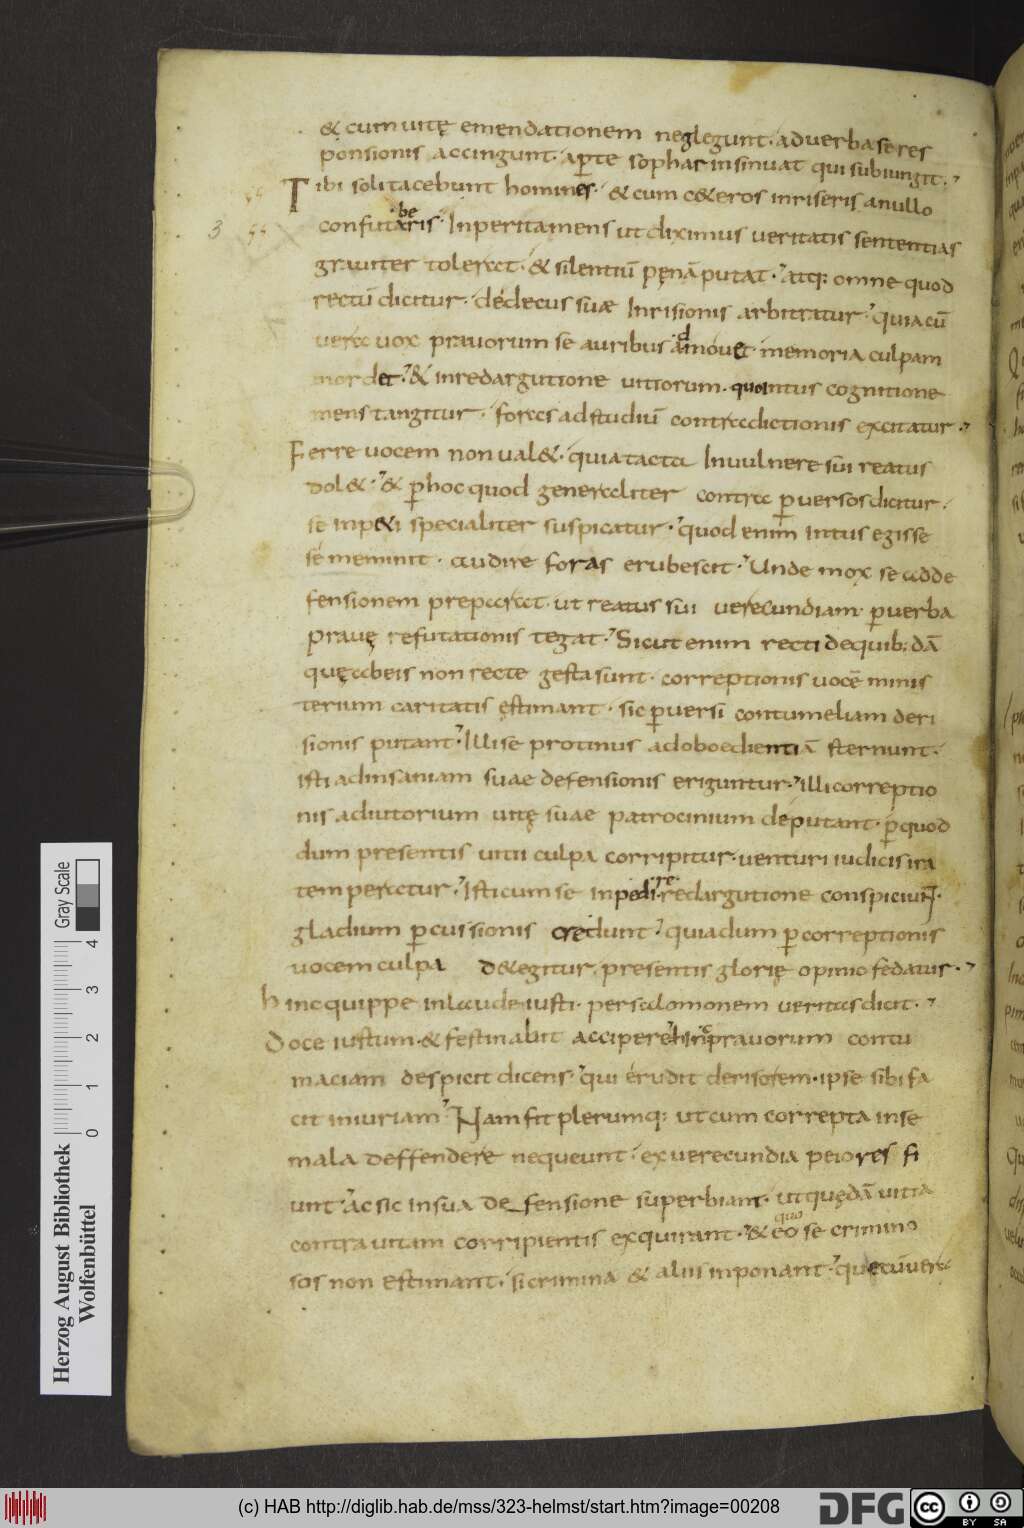 & cum uitę emendationem neglegunt · aduerba se res
ponsionis accingunt · aꝑte sophar insinuat qui subiungit ·
Tibi soli tacebunt homines · & cum c&eros inriseris a nullo
be
confutaris · Inperitamens ut diximus ueritatis sententias
3
grauiter tolerat · & silentiū pęnā putat · atq: omne quod
rectū dicitur · dedecus suae Inrisionis arbitratur · quia cū
uerax uox prauorum se auribus admouet · memoria culpam
mordet · & inredargutione uitiorum · quo intus cognitione
mens tangitur · foras ad studiū contradictionis excitatur ·
Ferre uocem non ual& · quia tacta In uulnere sui reatus
dol& · & ꝑ hoc quod generaliter contra ꝑuersos dicitur ·
se inp&i specialiter suspicatur · quod enim intus egisse
se meminit · audire foras erubescit · Unde mox se adde
fensionem preparat · ut reatus sui uerecundiam · ꝑ uerba
prauę refutationis tegat · Sicut enim recti de quib; dā
quę ab eis non recte gesta sunt · correptionis uocē minis
terium caritatis ęstimant · sic ꝑuersi contumeliam deri
sionis putant · Illi se protinus ad oboedientiā sternunt ·
isti ad insaniam suae defensionis eriguntur · illi correptio
nis adiutorium uitę suae patrocinium deputant · ꝑ quod
dum presentis uitii culpa corripitur · uenturi iudicis ira
re
temperatur · Isti cum se inpedi · redargutione conspiciunt ·
gladium ꝑcussionis credunt · quia dum ꝑ correptionis
uocem culpa d&egitur · presentis glorię opinio fedatur ·
hinc quippe in laude iusti · per salomonem ueritas dicit ·
Doce iustum · & festinabit accipere · hinc prauorum contu
maciam despicit dicens · qui erudit derisorem · ipse sibi fa
cit iniuriam · Nam fit plerumq: ut cum correpta in se
mala deffendere nequeunt · ex uerecundia peiores fi
unt · ac sic in sua defensione superbiant · ut quędā uitia
quo
contra uitam corripientis exquirant · & eo se crimino
sos non estimant · si crimina & aliis inponant · quę cū uera
Gray Scale
0 1 2 3 4
Herzog August Bibliothek
Wolfenbüttel
(c) HAB http://diglib.hab.de/mss/323-helmst/start.htm?image=00208
DFG
cc BY SA